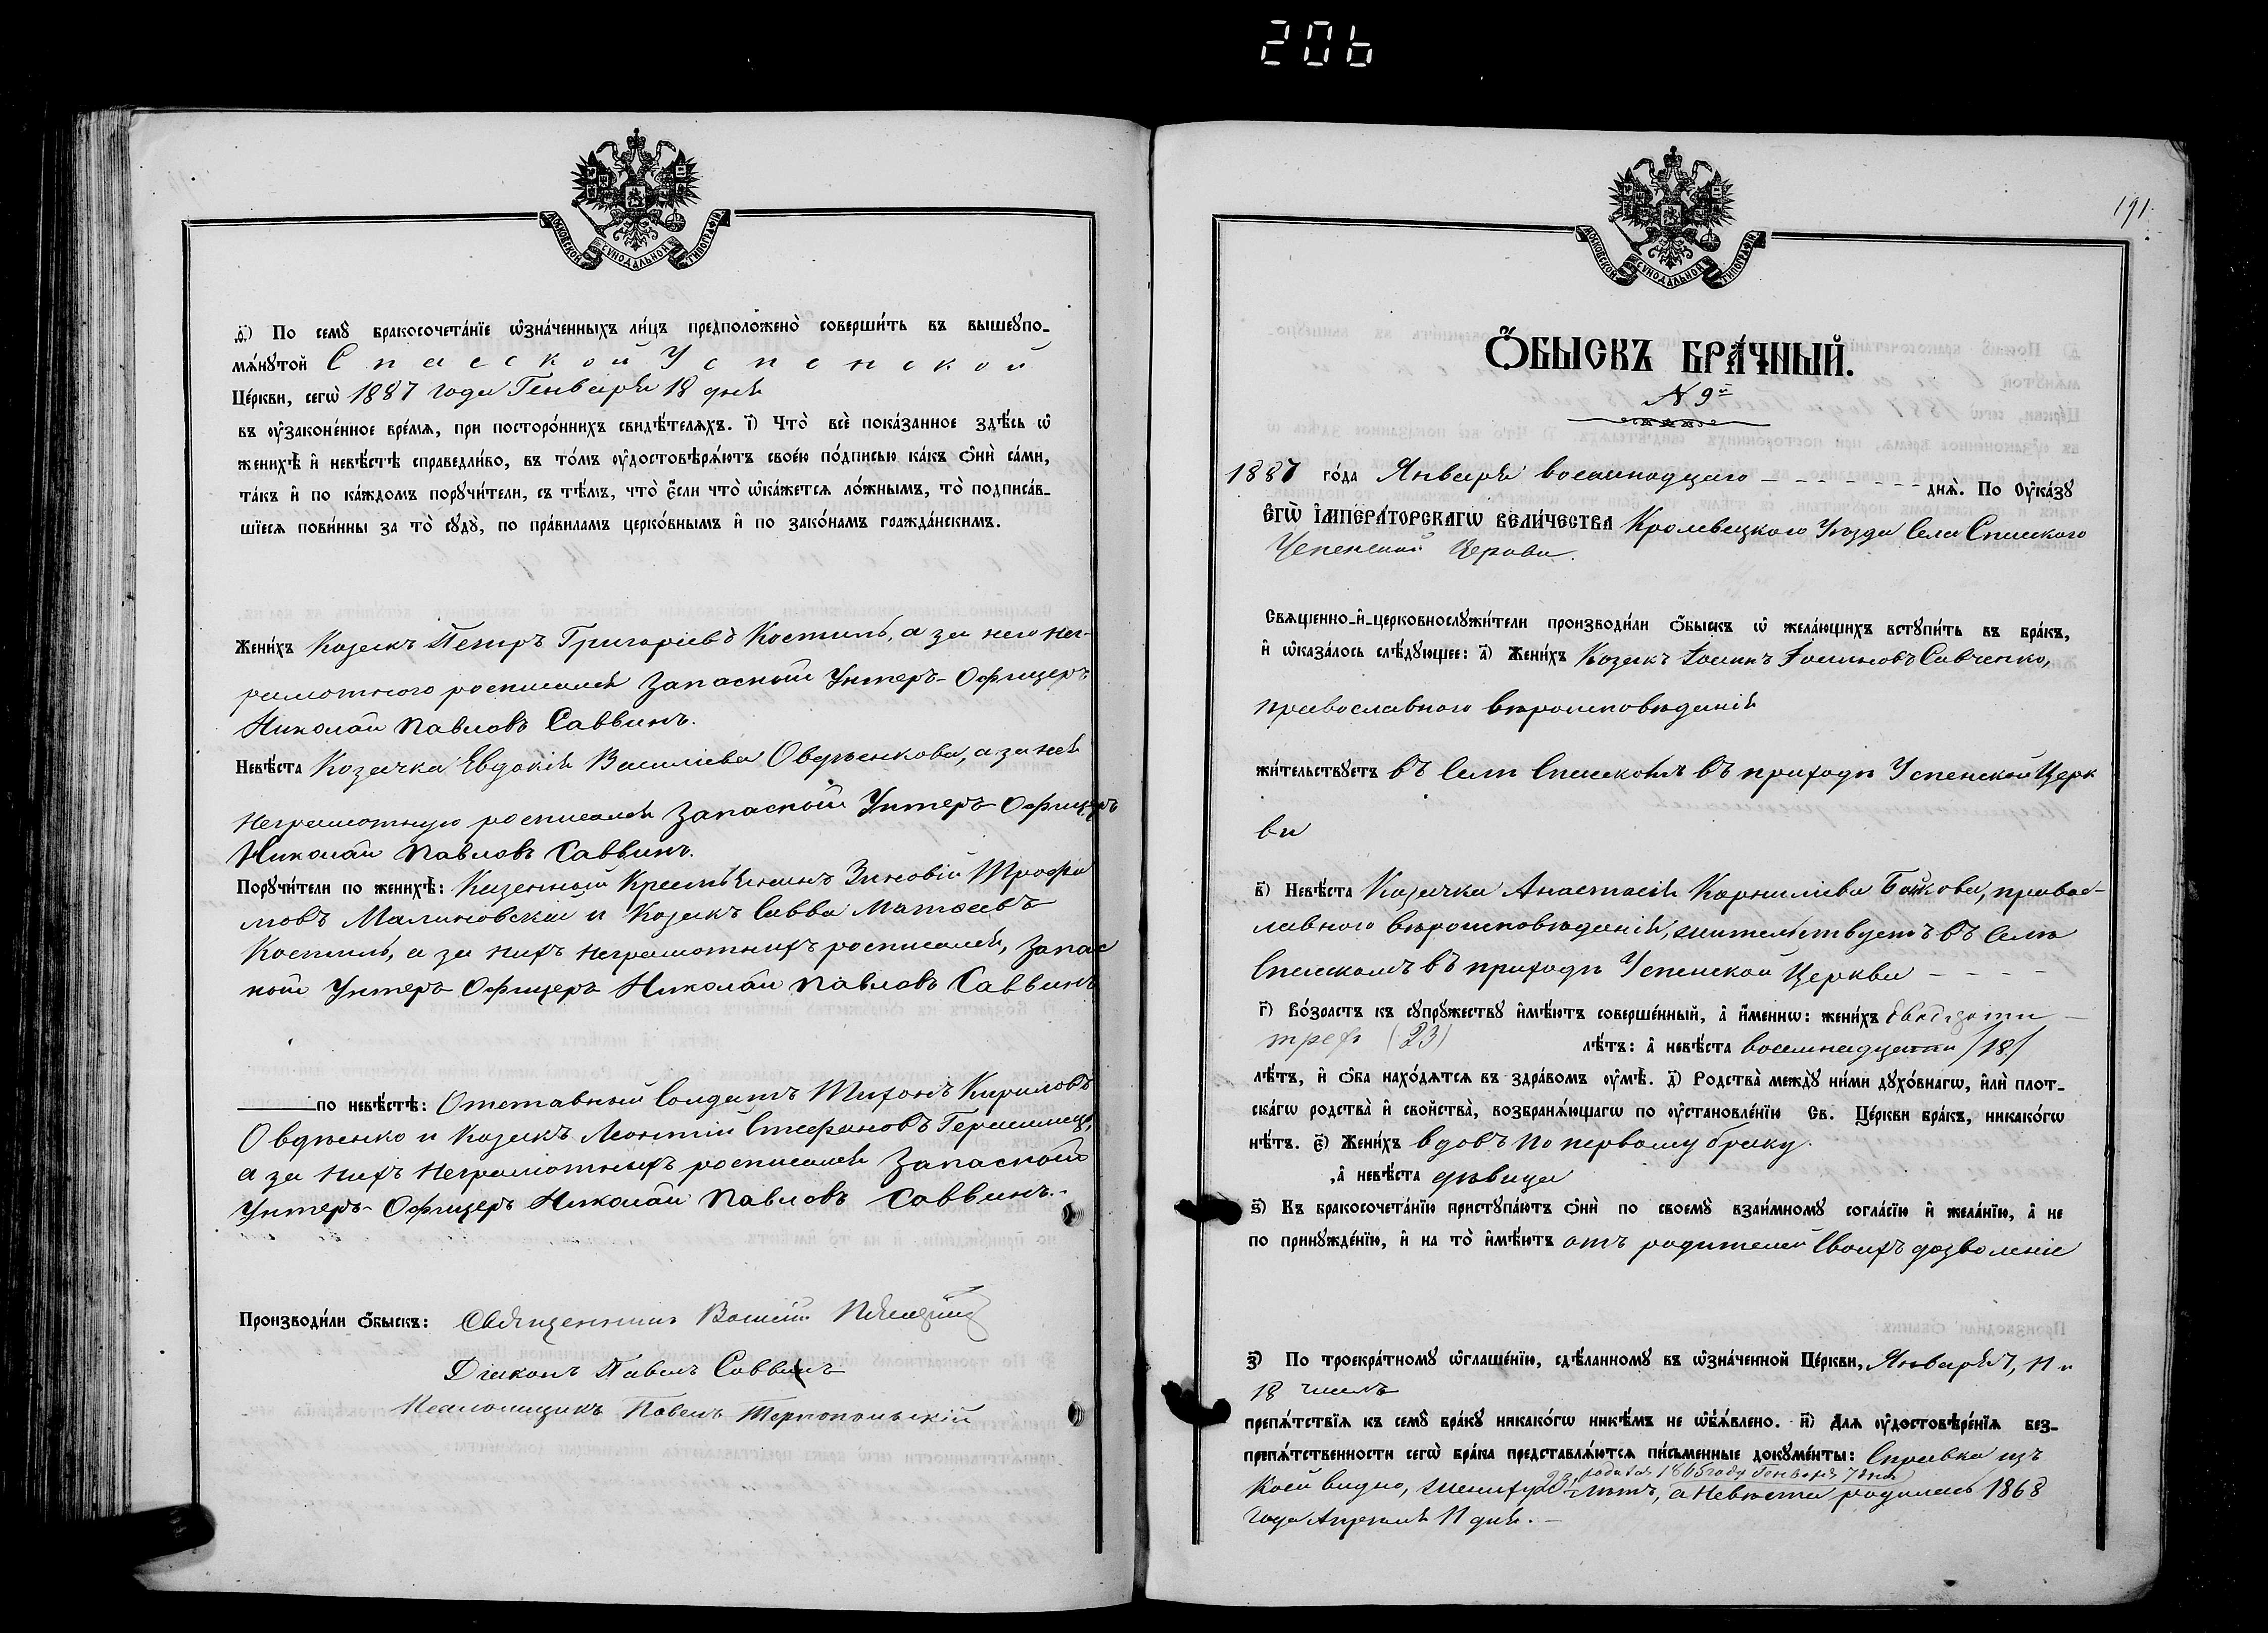 206
МОСКОВСКОЙ СѴНОДАЛЬНОЙ ТИПОГРАФІИ
д҃і) По семꙋ̀ бракосочета́нїе ѡ҆зна́ченныхъ ли́цъ предположено̀ соверши́ть въ вышеꙋпо-
мѧ́нꙋтой Спасской Успенской
Це́ркви, сегѡ̀ 1887 года Генваря 18 дня
въ ᲂу҆законе́нное вре́мѧ, при посторо́ннихъ свидѣ́телѧхъ. і҃) Что̀ всѐ пока́занное здѣ́сь ѡ҆
женихѣ̀ и҆ невѣ́стѣ справедли́во, въ то́мъ ᲂу҆достовѣрѧ́ютъ свое́ю по́дписью ка́къ ѻ҆нѝ са́ми,
та́къ и҆ по ка́ждомъ порꙋчи́тели, съ тѣ́мъ, что̀ є҆́сли что̀ ѡ҆ка́жетсѧ ло́жнымъ, то̀ подписа́в-
шїесѧ пови́нны за то̀ сꙋдꙋ̀, по пра́виламъ церко́внымъ и҆ по зако́намъ гражда́нскимъ.
Жени́хъ Козакъ Петръ Григоріевъ Костиль, а за него нег-
рамотного росписался Запасной Унтеръ-Офицеръ
Николай Павловъ Саввинъ.
Невѣ́ста Козачка Евдокія Василіева Овдѣенкова, а за нея
Неграмотную росписался Запасной Унтеръ-Офицеръ
Николай Павловъ Саввинъ.
Порꙋчи́тели по женихѣ̀: Казенный Крестьянинъ Зиновій Трофи
мовъ Малиновскій и Козакъ Савва Матѳеевъ
Костиль, а за нихъ неграмотныхъ росписался, Запас
ной Унтеръ Офицеръ Николай Павловъ Саввинъ
по невѣ́стѣ: Отставный Солдатъ Тихонъ Кириловъ
Овдѣенко и Козакъ Леонтій Стефановъ
а за нихъ Неграмотныхъ росписался Запасной
Унтеръ-Офицеръ Николай Павловъ Саввинъ.-
Производи́ли ѻ҆́быскъ: Священникъ
Діаконъ Павелъ Саввинъ
Псаломщикъ Павелъ Тернопольскій
191.
МОСКОВСКОЙ СѴНОДАЛЬНОЙ ТИПОГРАФІИ
Ѻ҆́БЫСКЪ БРА́ЧНЫЙ.
№ 9й
1887 го́да Января восемнадцаго - - - - - - - днѧ̀. По Оу҆ка́зꙋ
Е҆ГѠ̀ И҆МПЕРА́ТОРСКАГѠ ВЕЛИ́ЧЕСТВА Кролевецкого Уѣзда Села Спасского
Успенской Церкви.
Свѧще́нно-и҆-церковнослꙋжи́тели производи́ли ѻ҆́быскъ ѡ҆ жела́ющихъ встꙋпи́ть въ бра́къ,
и҆ ѡ҆каза́лось слѣ́дꙋющее: а҃) Жени́хъ Козакъ Іоаннъ Іоанновъ Савченко,
православного вѣроисповѣданія
жи́тельствꙋетъ въ Селѣ Спасскомъ въ приходѣ Успенской Церк
ви
в҃) Невѣ́ста Козачка Анастасія Корниліева Бойкова, правос-
лавного вѣроисповѣданія, жительствуетъ въ Селѣ
Спасскомъ въ приходѣ Успенской Церкви - - - -
г҃) Во́зрастъ къ сꙋпрꙋ́жествꙋ и҆мѣ́ютъ соверше́нный, а҆ и҆́меннѡ: жени́хъ двадцати -
трех (23) лѣ́тъ: а҆ невѣ́ста восемнадцати /18/
лѣ́тъ, и҆ ѻ҆́ба нахо́дѧтсѧ въ здра́вомъ ᲂу҆мѣ̀. д҃) Родства̀ междꙋ̀ ни́ми дꙋхо́внагѡ, и҆лѝ плот-
ска́гѡ родства̀ и҆ свойства̀, возбранѧ́ющагѡ по ᲂу҆становле́нїю Св. Це́ркви бра́къ, никако́гѡ
нѣ́тъ. є҃) Жени́хъ вдовъ по первому браку.
,а҆ невѣ́ста дѣвица
ѕ҃) Къ бракосочета́нїю пристꙋпа́ютъ ѻ҆нѝ по своемꙋ̀ взаи́мномꙋ согла́сїю и҆ жела́нїю, а҆ не
по принꙋжде́нїю, и҆ на то̀ и҆мѣ́ютъ отъ родителей своихъ дозволеніе
з҃) По троекра́тномꙋ ѡ҆глаше́нїю, сдѣ́ланномꙋ въ ѡ҆зна́ченной Це́ркви, Января 7, 11 и
18 числъ
препѧ́тствїѧ къ семꙋ̀ бра́кꙋ никако́гѡ никѣ́мъ не ѡ҆б̾ѧ́влено. и҃) Длѧ ᲂу҆достовѣре́нїѧ без-
препѧ́тственности сегѡ̀ бра́ка представлѧ́ютсѧ пи́сьменные докꙋме́нты: Справка изъ
родился 1865 году Генваря 7 дня
коей видно, жениху 23 лѣтъ, а Невѣста родилась 1868
года Апреля 11 дня. -